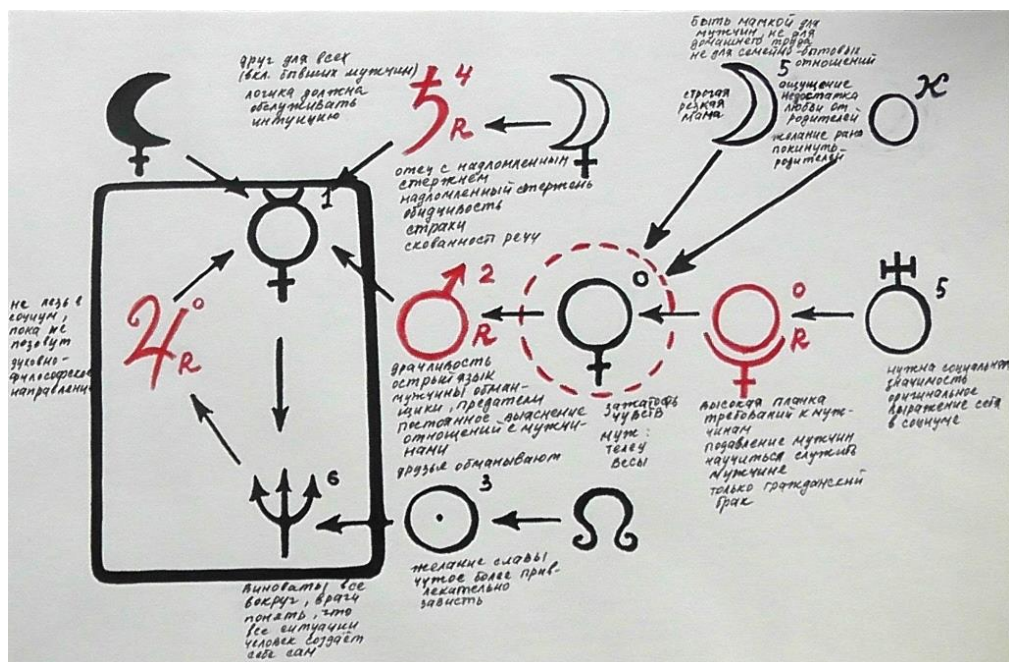 друг для всех
(вкл. бывших мужчин)
логика должна
обслуживать
интуицию
1
4
R
отец с надломленным
стержнем
надломленный стержень
обидчивость
страхи
скованность речи
быть мамкой для
мужчин, не для
домашнего труда
не для семейно-бытовых
отношений
5
строгая
резкая
мама
ощущение
недостатка
любви от
родителей
желание рано
покинуть
родителей
К
не лезь в
социум,
пока не
позовут
духовно-
философское
направление
0
R
2
R
драчливость
острый язык
мужчины обман-
щики, предатели
постоянное выяснение
отношений с мужчи-
нами
друзья обманывают
0
зажатость
чувств
муж:
телец
весы
0
R
высокая планка
требований к муж-
чинам
подавление мужчин
научиться служить
мужчине
только гражданский
брак
5
нужна социальная
значимость
оригинальное
выражение себя
в социуме
6
виноваты все
вокруг, враги
понять, что
все ситуации
человек создаёт
себе сам
3
желание славы
чужое более прив-
лекательно
зависть